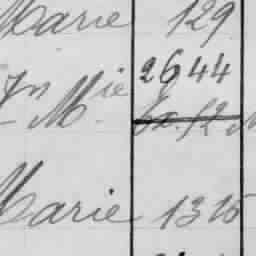 Marie 129
Jn Mie 2644
M.
Marie 1315